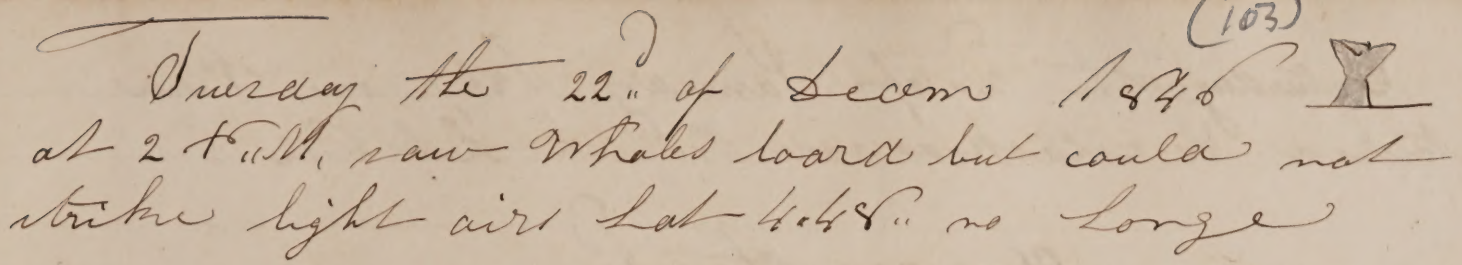 (103)
Tuesday the 22d of Decem 1846
at 2 P.M. saw Whales loard but could not
strike light airs Lat 4.48 no Longe